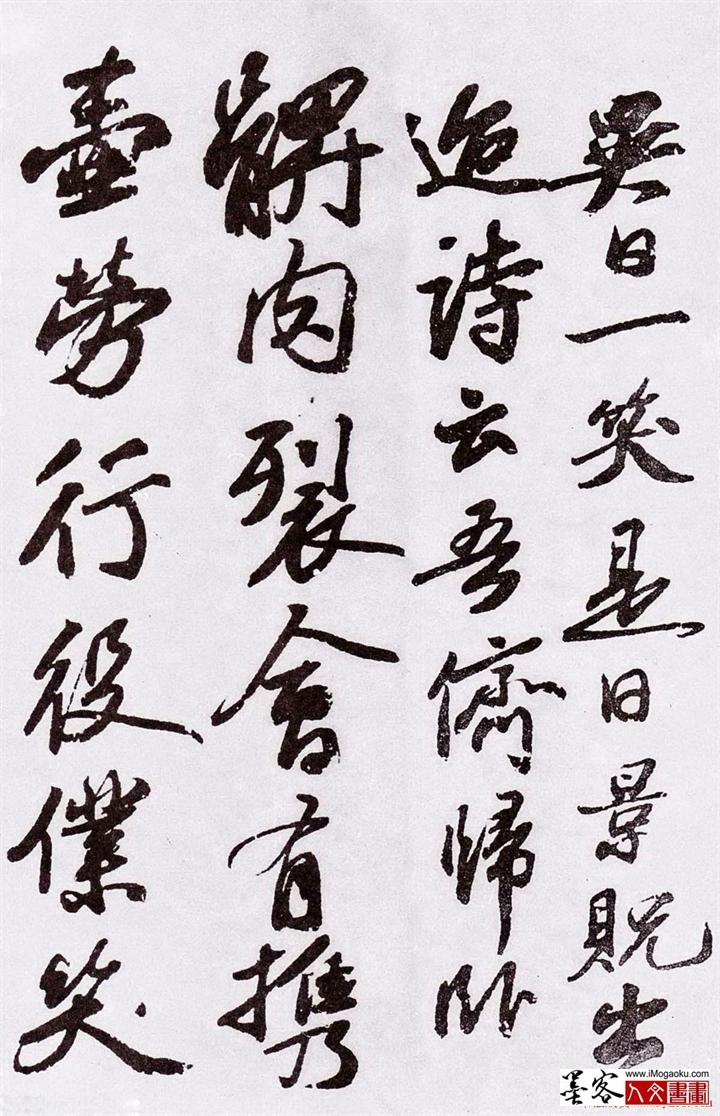 異日一笑是日景貺出
迨詩云吾儕歸臥
髀肉裂會有攜
壺勞行役僕笑
墨客 www.iMogaoku.com
人文書畫